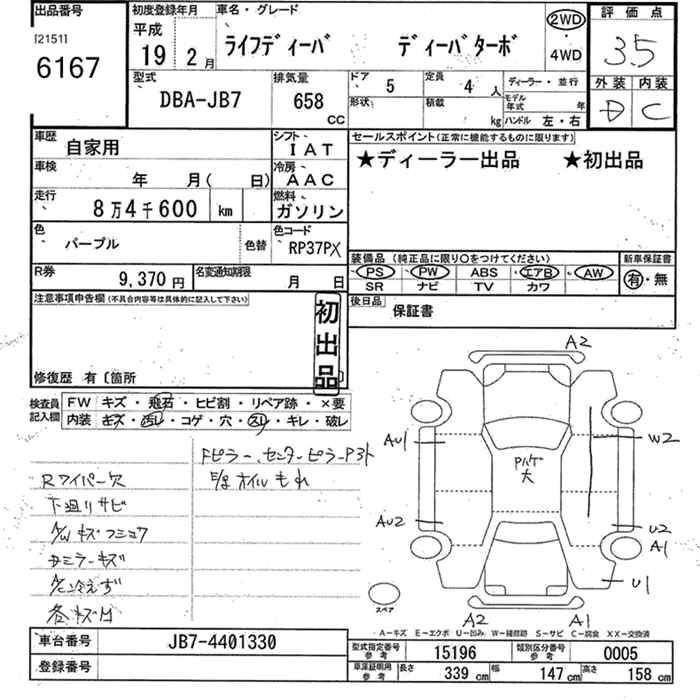 出品番号
[2151]
6167
初度登録年月
平成
19年 2月
車名・グレード
ライフディーバ ディーバターボ
2WD
4WD
評価点
3.5
外装 内装
D C
型式
DBA-JB7
排気量
658
CC
ドア
5
定員
4人
形状
積載
kg
ディーラー・並行
モデル年式 年
ハンドル 左・右
車歴
自家用
シフト
IAT
車検
年 月( 日)
冷房
AAC
走行
8万4千600 km
燃料
ガソリン
色
パープル
色替
色コード
RP37PX
R券
9,370円
名変通知期限
月 日
セールスポイント(正常に機能するものに限ります)
★ディーラー出品 ★初出品
装備品(純正品に限り○をつけてください)
PS PW ABS エアB AW
SR ナビ TV カワ
新車保証書
有・無
後日品
保証書
注意事項申告欄(不具合内容等は具体的に記入して下さい)
初出品
修復歴 有〔箇所
検査員記入欄
FW キズ・飛石・ヒビ割・リペア跡・×要
内装 キズ・汚レ・コゲ・穴・スレ・キレ・破レ
Fピラー、センターピラーP3ト
Rワイパー欠
E/g オイルもれ
下廻りサビ
A/W キズ
ミラーキズ
A/C冷えず
A2
AU1
W2
大
AU2
U2
A1
U1
スペア
A2
A1
A−キズ E−エクボ U−凹み W−補修跡 S−サビ C−腐食 XX−交換済
車台番号
JB7-4401330
登録番号
型式指定番号
参考
15196
類別区分番号
参考
0005
車庫証明用
参考
長さ 339 cm
幅 147 cm
高さ 158 cm